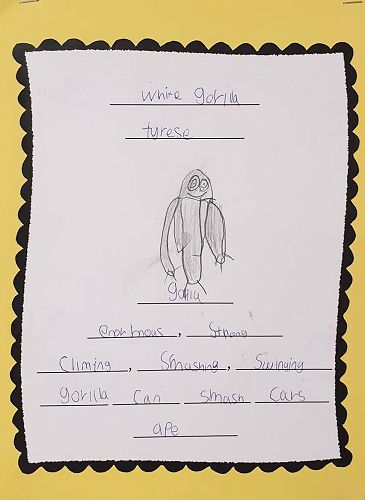 white gorlla
tyrese
golla
enormous, Strong
Climing, Smashing, Swinging
gorilla Can smash Cars
ape